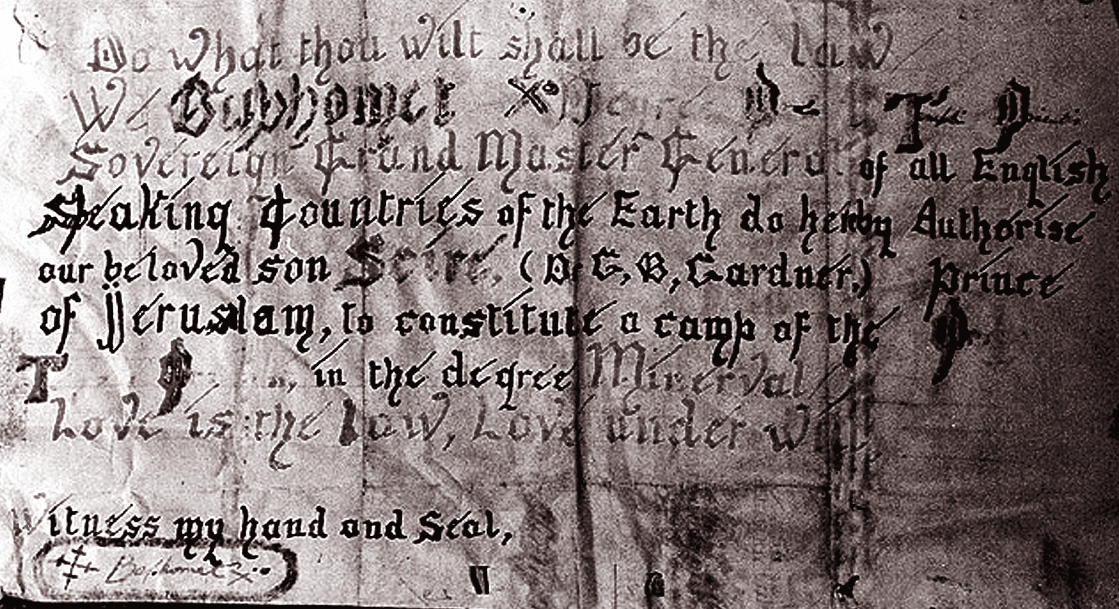 Do what thou wilt shall be the law
We Baphomet X° Degree
Sovereign Grand Master General of all English
Speaking Countries of the Earth do herby Authorise
our beloved son Scire, (Dr G,B,Gardner,) Prince
of Jerusalam, to constitute a camp of the
in the degree Minerval
Love is the Law, Love under will
Witness my hand and Seal,
Baphomet X°